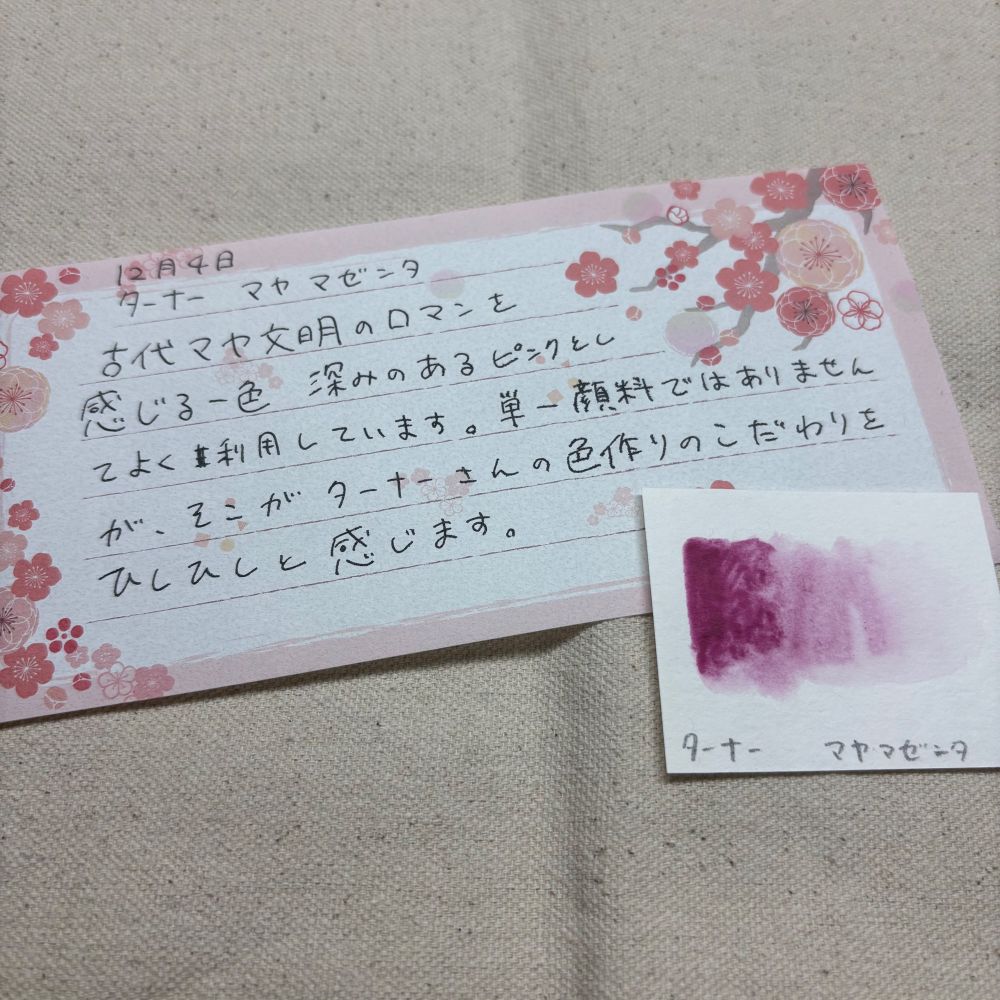 12月4日
ターナー マヤマゼンタ
古代マヤ文明のロマンを
感じる一色 深みのあるピンクとし
てよく利用しています。単一顔料ではありません
が、そこがターナーさんの色作りのこだわりを
ひしひしと感じます。
ターナー マヤマゼンタ